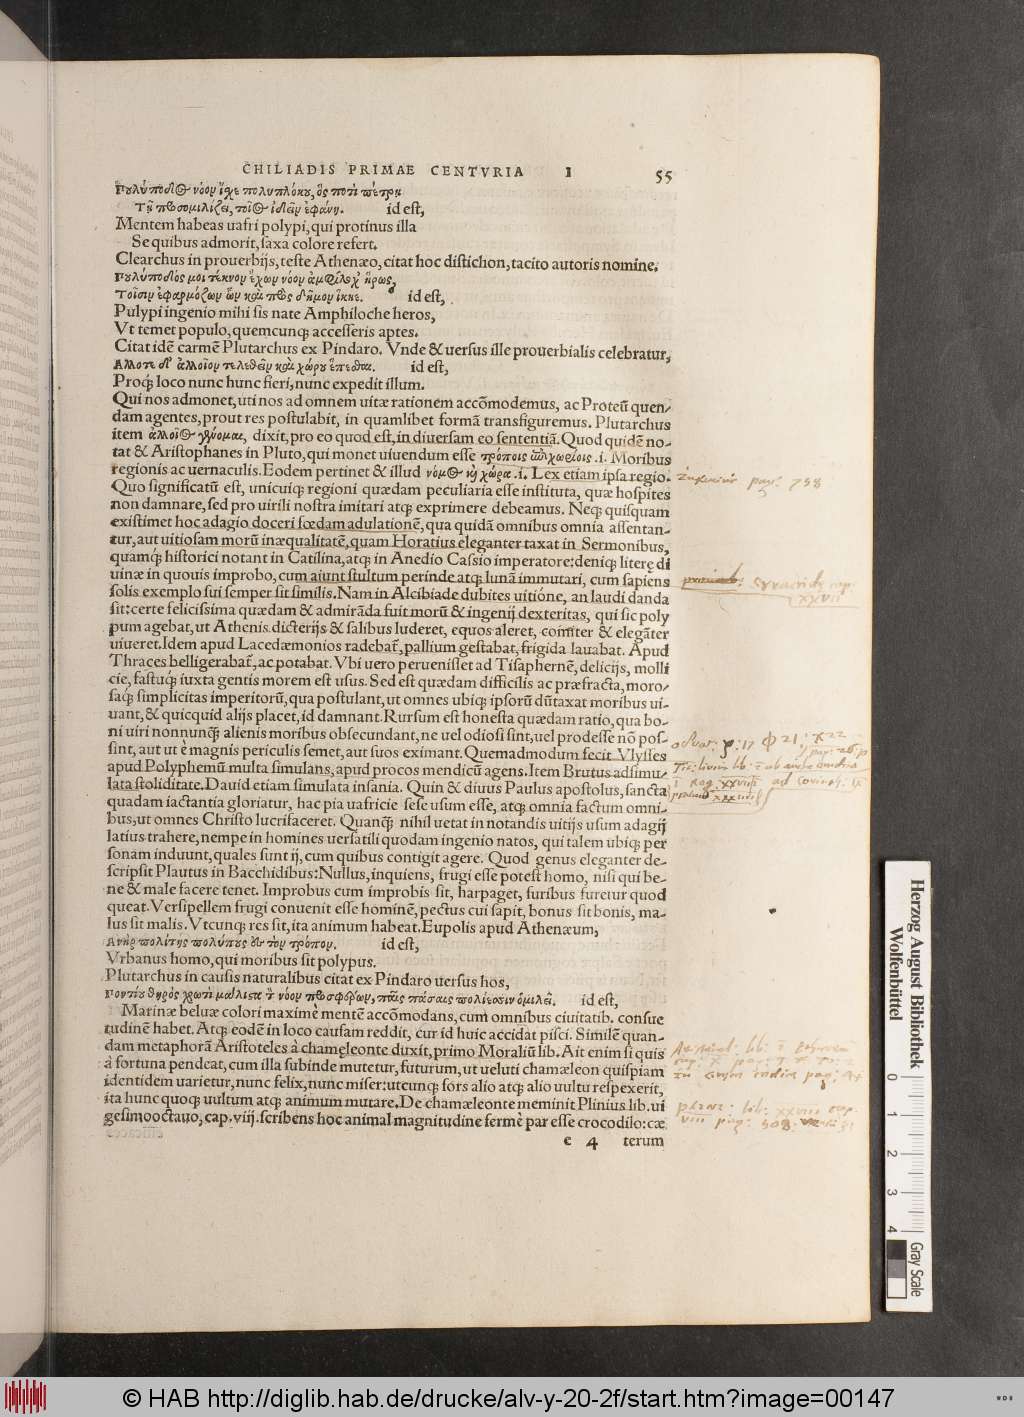 CHILIADIS PRIMAE CENTVRIA I 55
Πουλύποδος νόον ἴσχε πολυπλόκου, ὃς ποτὶ πέτρῃ
Τῇ προσομιλήσει, τοῖος ἰδεῖν ἐφάνη. id est,
Mentem habeas uafri polypi, qui protinus illa
Se quibus admorit, saxa colore refert.
Clearchus in prouerbijs, teste Athenæo, citat hoc distichon, tacito autoris nomine.
Πουλύποδός μοι τέκνον ἔχων νόον ἀμφίλοχ᾽ ἥρως,
Τοῖσιν ἐφαρμόζων ὧν καὶ πρὸς δῆμον ἵκηε. id est,
Pulypi ingenio mihi sis nate Amphiloche heros,
Vt temet populo, quemcunqꝫ accesseris aptes.
Citat idē carmē Plutarchus ex Pindaro. Vnde & uersus ille prouerbialis celebratur,
Αλλοτε δ᾽ ἀλλοῖον τελέθειν καὶ χώρῃ ἕπεσθαι. id est,
Proqꝫ loco nunc hunc fieri, nunc expedit illum.
Qui nos admonet, uti nos ad omnem uitæ rationem accōmodemus, ac Proteū quen-
dam agentes, prout res postulabit, in quamlibet formā transfiguremus. Plutarchus
item ἀλλοῖος γένομαι, dixit, pro eo quod est, in diuersam eo sententiā. Quod quidē no-
tat & Aristophanes in Pluto, qui monet uiuendum esse τρόποις ἐπιχωρίοις .i. Moribus
regionis ac uernaculis. Eodem pertinet & illud νόμος καὶ χώρα .i. Lex etiam ipsa regio.
Quo significatū est, unicuiqꝫ regioni quædam peculiaria esse instituta, quæ hospites
non damnare, sed pro uirili nostra imitari atqꝫ exprimere debeamus. Neqꝫ quisquam
existimet hoc adagio doceri fœdam adulationē, qua quidā omnibus omnia assentan-
tur, aut uitiosam morū inæqualitatē, quam Horatius eleganter taxat in Sermonibus,
quamqꝫ historici notant in Catilina, atqꝫ in Anedio Cassio imperatore: deniqꝫ literę di
uinæ in quouis improbo, cum aiunt stultum perinde atqꝫ lunā immutari, cum sapiēns
solis exemplo sui semper sit similis. Nam in Alcibiade dubites uitióne, an laudi danda
sit: certe felicissima quædam & admirāda fuit morū & ingenij dexteritas, qui sic poly
pum agebat, ut Athenis dicterijs & salibus luderet, equos aleret, comiter & elegāter
uiueret. Idem apud Lacedæmonios radebat̃, pallium gestabat, frigida lauabat. Apud
Thraces belligerabat̃, ac potabat. Vbi uero peruenisset ad Tisaphernē, delicijs, molli
cie, fastuqꝫ iuxta gentis morem est usus. Sed est quædam difficilis ac præfracta, moro-
saqꝫ simplicitas imperitorū, qua postulant, ut omnes ubiqꝫ ipsorū dūtaxat moribus ui-
uant, & quicquid alijs placet, id damnant. Rursum est honesta quædam ratio, qua bo-
ni uiri nonnunqꝫ alienis moribus obsecundant, ne uel odiosi sint, uel prodesse nō pos-
sint, aut ut è magnis periculis semet, aut suos eximant. Quemadmodum fecit Vlysses
apud Polyphemū multa simulans, apud procos mendicū agens. Item Brutus adsimu-
lata stoliditate. Dauid etiam simulata insania. Quin & diuus Paulus apostolus, sancta
quadam iactantia gloriatur, hac pia uafricie sese usum esse, atqꝫ omnia factum omni-
bus, ut omnes Christo lucrifaceret. Quanqꝫ nihil uetat in notandis uitijs usum adagij
latius trahere, nempe in homines uersatili quodam ingenio natos, qui talem ubiqꝫ per
sonam induunt, quales sunt ij, cum quibus contigit agere. Quod genus eleganter de-
scripsit Plautus in Bacchidibus: Nullus, inquiens, frugi esse potest homo, nisi qui be-
ne & male facere tenet. Improbus cum improbis sit, harpaget, furibus furetur quod
queat. Versipellem frugi conuenit esse hominē, pectus cui sapit, bonus sit bonis, ma-
lus sit malis. Vtcunqꝫ res sit, ita animum habeat. Eupolis apud Athenæum,
Ανὴρ πολίτης πολύπους ἐς τὸν τρόπον. id est,
Vrbanus homo, qui moribus sit polypus.
Plutarchus in causis naturalibus citat ex Pindaro uersus hos,
Ποντίου θηρὸς χρωτὶ μάλιστα τὸν νόον προσφέρων, πάσαις πολίεσσιν ὁμίλει. id est,
Marinæ beluæ colori maximè mentē accōmodans, cum omnibus ciuitatib. consue
tudinē habet. Atqꝫ eodē in loco causam reddit, cur id huic accidat pisci. Similē quan-
dam metaphorā Aristoteles à chameleonte duxit, primo Moraliū lib. Ait enim si quis
à fortuna pendeat, cum illa subinde mutetur, futurum, ut ueluti chamæleon quispiam
identidem uarietur, nunc felix, nunc miser: utcunqꝫ sors alio atqꝫ alio uultu respexerit,
ita hunc quoqꝫ uultum atqꝫ animum mutare. De chamæleonte meminit Plinius lib. ui
gesimooctauo, cap. viij. scribens hoc animal magnitudine fermè par esse crocodilo: cæ
e 4 terum
pag. 758
XXVII
Herzog August Bibliothek
Wolfenbüttel
0 1 2 3 4
Gray Scale
© HAB http://diglib.hab.de/drucke/alv-y-20-2f/start.htm?image=00147